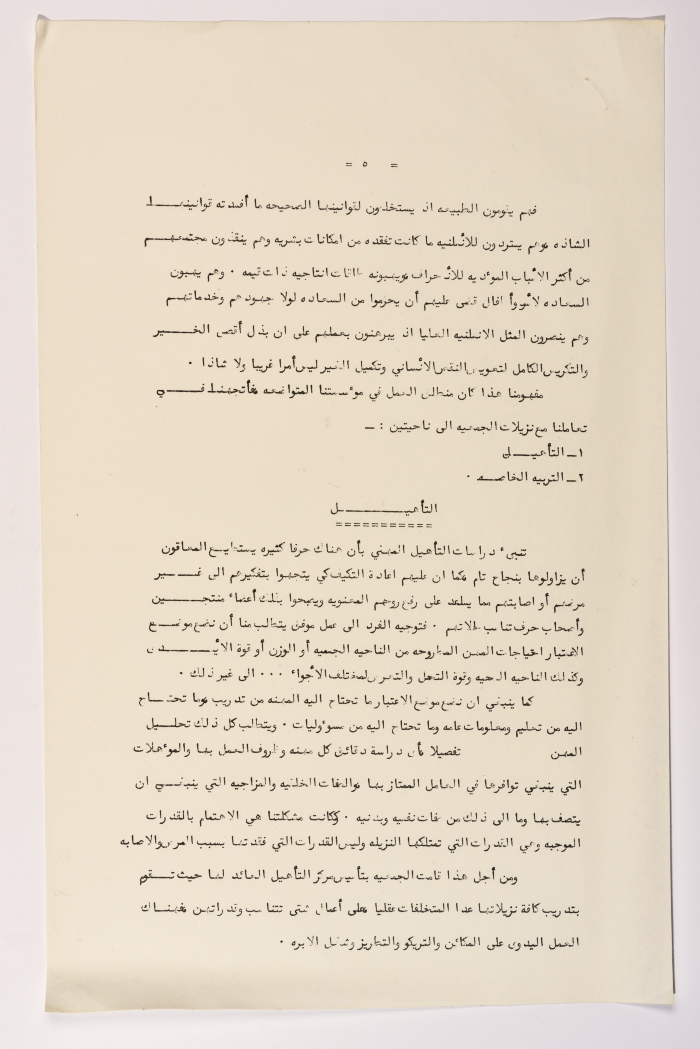 = ٥ =
فهم يقومون الطبيعه اذ يستخلصون لقوانينها الصحيحه ما أفسدته قوانينهـــا
الشاذه وهم يستردون للانسانيه ما كانت تفقده من امكانات بشريه وهم ينقذون مجتمعهـــم
من أكثر الأسباب المؤديه للانحراف ويهبونه طاقات انتاجيه ذات قيمه ٠ وهم يهبون
السعاده لأسوأ اقال قضى عليهم أن يحرموا من السعاده لولا جهودهم وخدماتهم
وهم ينصرون المثل الانسانيه العليا اذ يبرهنون بعملهم على ان بذل أقصى الخـــير
والتكريس الكامل لتعويض النقص الأنساني وتكميل الغير ليس أمرا غريبا ولا شاذا ٠
مفهومنا هذا كان منطلق العمل في مؤسستنا المتواضعه فأتجهنا فـــي
تعاملنا مع نزيلات الجمعيه الى ناحيتين : ـ
١ـ التأهيــل
٢ـ التربيه الخاصــه ٠
التأهيـــــــــل
===========
تنبىء دراسات التأهيل المهني بأن هناك حرفا كثيره يستطيـع المعاقون
أن يزاولوها بنجاح تام فكما ان عليهم اعادة التكيف كي يتجهوا بتفكيرهم الى غـــير
مرضهم أو اصابتهم مما يساعد على رفع روحهم المعنويه ويصبحوا بذلك أعضاء منتجـــين
وأصحاب حرف تناسب حالاتهم ٠ فتوجيه الفرد الى عمل موفق يتطلب منا أن نضع موضـــع
الاعتبار احتياجات المهن المطروحه من الناحيه الجسميه أو الوزن أو قوة الأيـــدى
وكذلك الناحيه الحسيه وقوة التحمل والتعرض لمختلف الأجواء ٠٠٠ الى غير ذلك ٠
كما ينبغي ان نضع موضع الاعتبار ما تحتاج اليه المهنه من تدريب وما تحتــاج
اليه من تعليم ومعلومات عامه وما تحتاج اليه من مسؤوليات ٠ ويتطلب كل ذلك تحليــل
المهن تفصيلا بأى دراسة دقائق كل مهنه وظروف العمل بها والمؤهلات
التي ينبغي توافرها في العامل الممتاز بها والصفات الخلقيه والمزاجيه التي ينبغـــي ان
يتصف بها وما الى ذلك من صفات نفسيه وبدنيه ٠ وكانت مشكلتنا هي الاهتمام بالقدرات
الموجبه وهي القدرات التي تمتلكها النزيله وليس القدرات التي فقدتها بسبب المرض والاصابه
ومن أجل هذا قامت الجمعيه بتأسيس مركز التأهيل العائد لها حيث تــقوم
بتدريب كافة نزيلاتها عدا المتخلفات عقليا على أعمال شتى تتناسب وقدراتهن فهنـــاك
العمل اليدوى على المكائن والتريكو والتطاريز وشغل الابره ٠